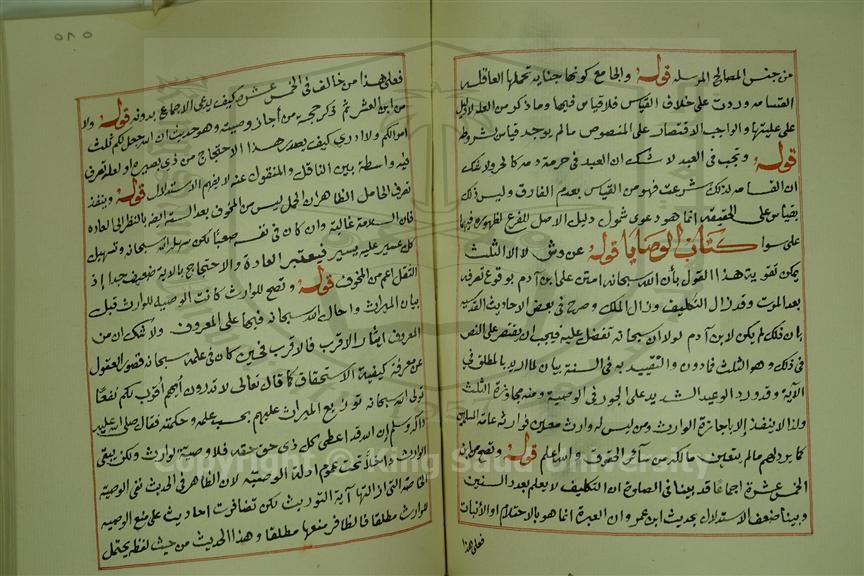 من جنس المصالح المرسله قوله والجامع كونها جنايه تحملها العاقله
القسامه وردت على خلاف القياس فلا قياس فيها وما ذكر من العله لا دليل
على عليتها والواجب الاقتصار على المنصوص مالم يوجد قياس بشروطه
قوله وتجب في العبد لا شك ان العبد في حرمة دمه كالحر ولا شك
ان القسامه لذلك شرعت فهو من القياس بعدم الفارق وليس ذلك
بقياس على الحقيقه انما هو دعوى شمول دليل الاصل للفرع لظهوره فيها
على سوا كتاب الوصايا قوله عن وش لا الا الثلث
يمكن تقوية هذا القول بأن الله سبحانه امتن على ابن آدم بوقوع تصرفه
بعد الموت وقد زال التكليف وزال الملك وصرح في بعض الاحاديث القدسيه
بان ذلك لم يكن لابن آدم لولا ان سبحانه تفضل عليه فيجب ان يقتصر على النص
في ذلك وهو الثلث فما دون والتقييد به في السنة بيان لما اريد بالمطلق في
الآية وقد ورد الوعيد الشديد على الجور في الوصية ومنه مجاوزة الثلث
ولذا لا ينفذ الا باجازة الوارث ومن ليس له وارث معين فوارثه عامة المسلمين
كما بدلهم مالم يتعين مالكه من سائر الحقوق والله اعلم قوله وتصح من ابن
الخمس عشرة اجماعا قد بينا في الصلوة ان التكليف لا يعلم بعدد السنين
وبينا ضعف الاستدلال بحديث ابن عمر وان العبرة انما هو بالاحتلام او الانبات
فعلى هذا
٥٨٥
فعلى هذا من خالف في الخمس عشره كيف يدعى الاجماع بدونه قوله ولا
من ابن العشر ثم ذكر حجة من أجاز وصيته وهو حديث ان الله جعل لكم ثلث
اموالكم ولا ادري كيف يصدر هذا الاحتجاج من ذي بصيره او لعله تحرف
فيه واسطة بين الناقل والمنقول عنه لا يفهم الاستدلال قوله وينفذ
تصرف الحامل الظاهر ان الحمل ليس من المخوف بعد الستة ايضه بالنظر الى العاده
فان السلامة غالبة وان كان في نفسه صعبا لكن سهله الله سبحانه وتسهيل
كل عسير عليه يسير فيعتبر العادة والاحتجاج بالاية ضعيف جدا إذ
الثقل اعم من المخوف قوله وتصح للوارث كانت الوصية للوارث قبل
بيان الميراث واحال الله سبحانه فيها على المعروف ولا شك ان من
المعروف ايثار الاقرب فالاقرب فحين كان في علمه سبحانه قصور العقول
عن معرفة كيفية الاستحقاق كما قال تعالى لا تدرون أيهم أقرب لكم نفعًا
تولى الله سبحانه توزيع الميراث عليهم بحسب علمه وحكمته فقال صلى الله عليه
وآله وسلم ان الله قد اعطى كل ذي حق حقه فلا وصية لوارث ولكن يبقى
الوارث داخلا تحت عموم ادلة الوصيه لان الظاهر في الحديث نفي الوصية
الخاصة التي ازالتها آية التوريث لكن تضافرت احاديث على منع الوصية
للوارث مطلقا فالظاهر منعها مطلقا وهذا الحديث من حيث لفظه يحتمل
Copyright © King Saud University